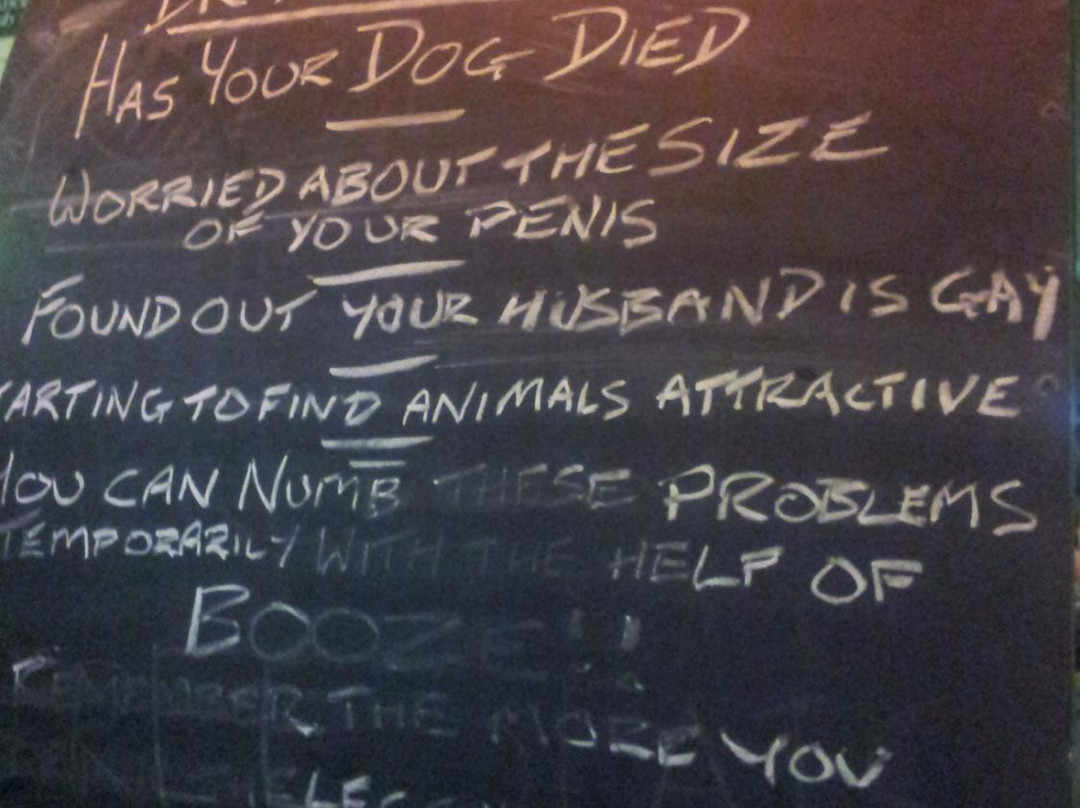 HAS YOUR DOG DIED
WORRIED ABOUT THE SIZE
OF YOUR PENIS
FOUND OUT YOUR HUSBAND IS GAY
TARTING TO FIND ANIMALS ATTRACTIVE
YOU CAN NUMB THESE PROBLEMS
TEMPORARILY WITH THE HELP OF
BOOZE!!
REMEMBER THE MORE YOU